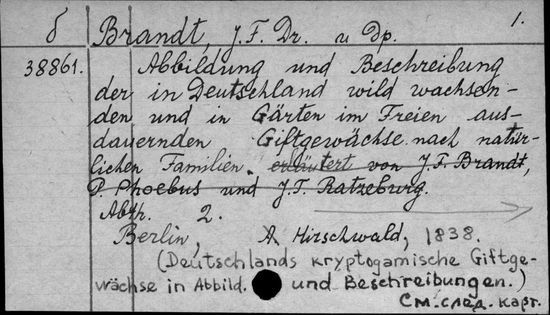 б Brandt, J.F. Dr. и др. 1.
38861. Abbildung und Beschreibung
der in Deutschland wild wachsen-
den und in Gärten im Freien aus-
dauernden Giftgewächse nach natür-
lichen Familien. erläutert von J.F. Brandt,
P. Phoebus und J.T. Ratzeburg.
Abth. 2.
Berlin, A. Hirschwald, 1838.
(Deutschlands kryptogamische Giftge-
wächse in Abbild. und Beschreibungen.)
См. след. карт.